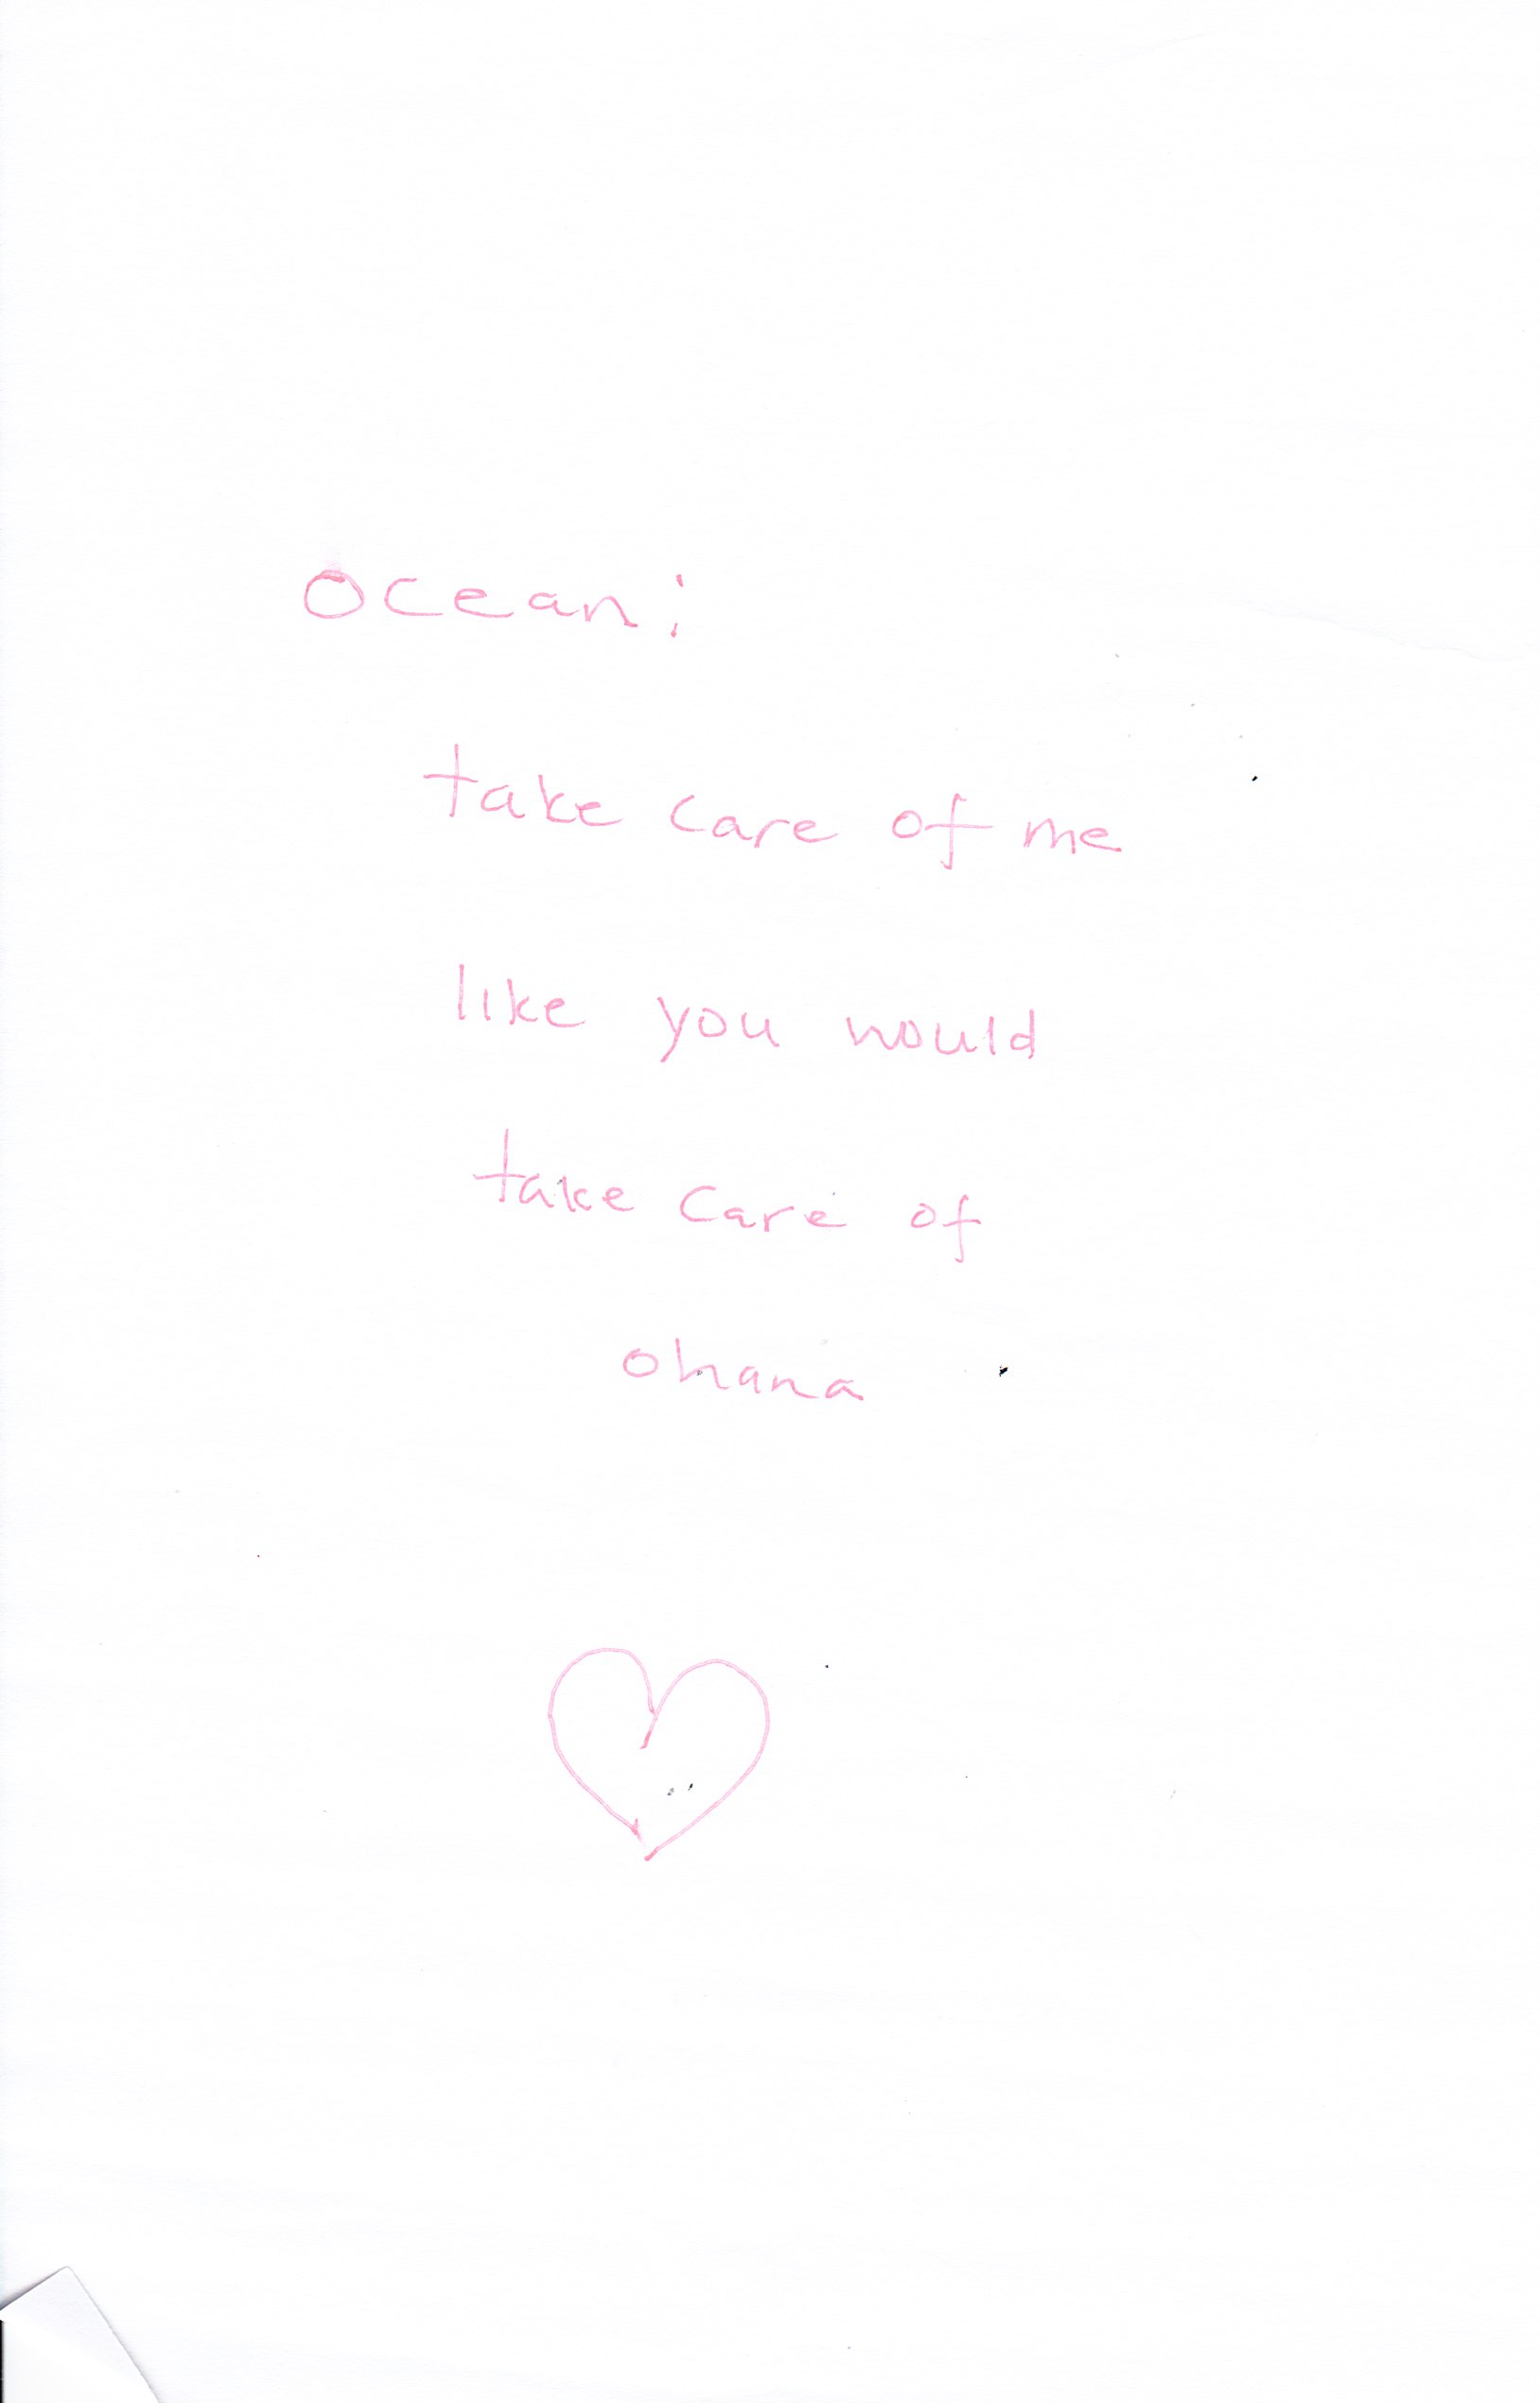 Ocean:
take care of me
like you would
take care of
ohana